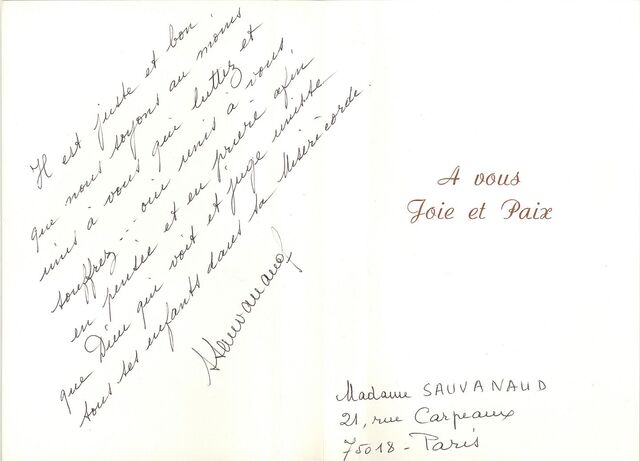 Il est juste et bon
que nous soyons au moins
unis à vous qui luttez et
souffrez... oui unis à vous,
en pensée et en prière afin
que Dieu qui voit et juge unisse
tous ses enfants dans sa Miséricorde.
Sauvanaud
A vous
Joie et Paix
Madame SAUVANAUD
21, rue Carpeaux
75018 - Paris